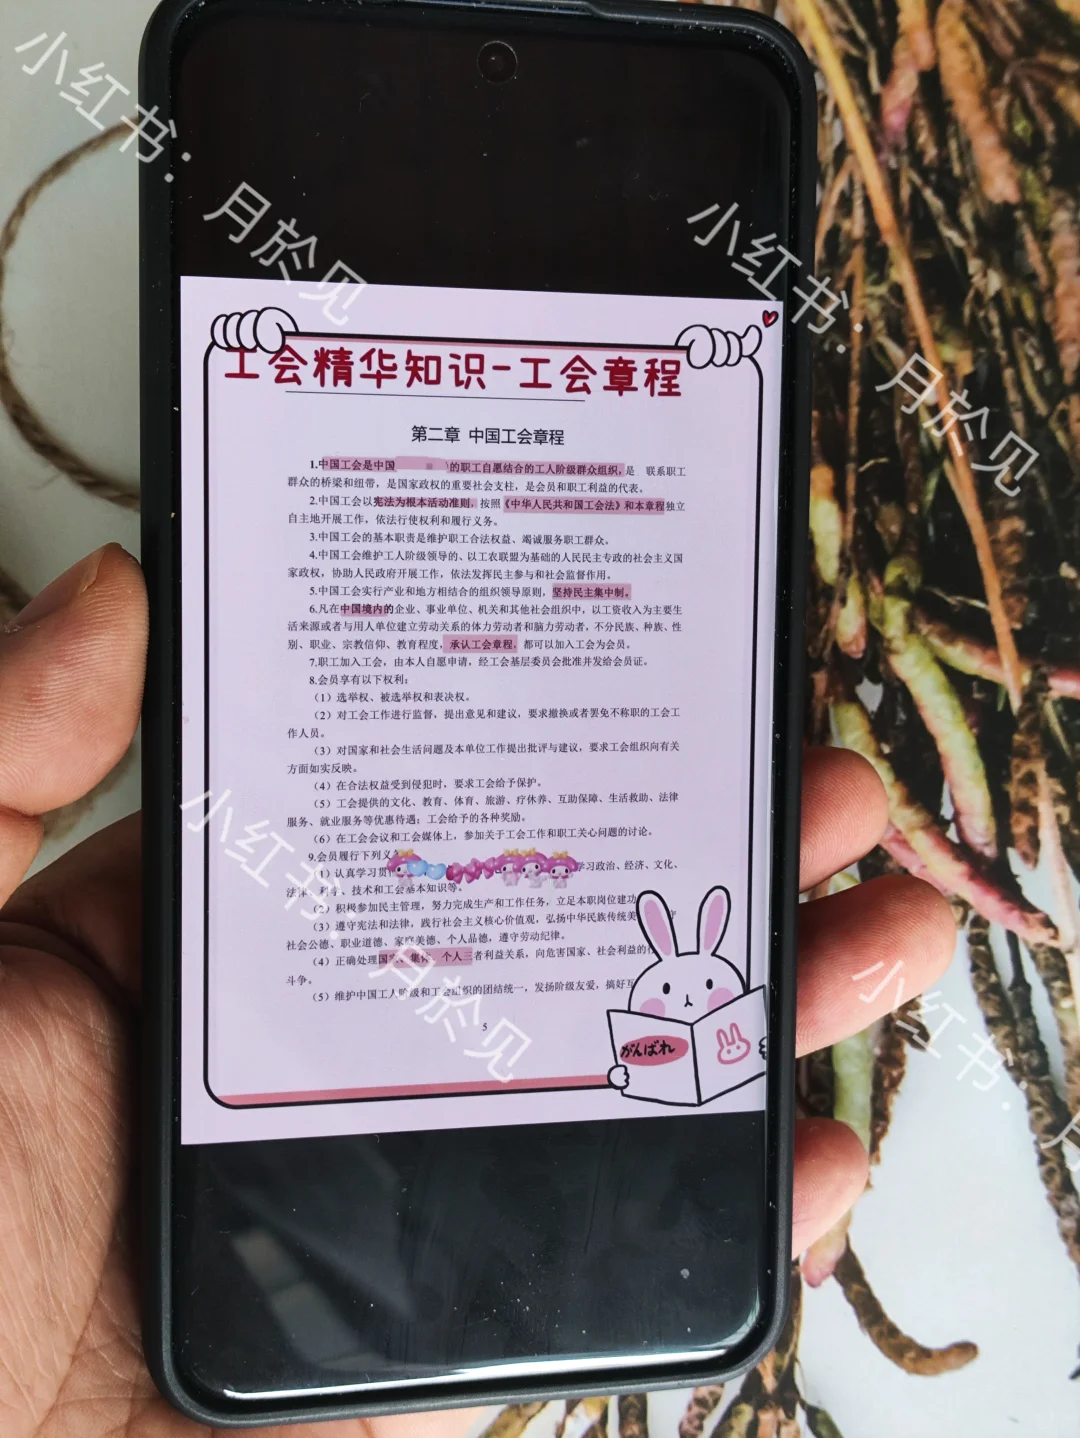 小红书：月於见
小红书：月於见
工会精华知识-工会章程
第二章 中国工会章程
1.中国工会是中国 的职工自愿结合的工人阶级群众组织，是 联系职工
群众的桥梁和纽带，是国家政权的重要社会支柱，是会员和职工利益的代表。
2.中国工会以宪法为根本活动准则，按照《中华人民共和国工会法》和本章程独立
自主地开展工作，依法行使权利和履行义务。
3.中国工会的基本职责是维护职工合法权益、竭诚服务职工群众。
4.中国工会维护工人阶级领导的、以工农联盟为基础的人民民主专政的社会主义国
家政权，协助人民政府开展工作，依法发挥民主参与和社会监督作用。
5.中国工会实行产业和地方相结合的组织领导原则，坚持民主集中制。
6.凡在中国境内的企业、事业单位、机关和其他社会组织中，以工资收入为主要生
活来源或者与用人单位建立劳动关系的体力劳动者和脑力劳动者，不分民族、种族、性
别、职业、宗教信仰、教育程度，承认工会章程，都可以加入工会为会员。
7.职工加入工会，由本人自愿申请，经工会基层委员会批准并发给会员证。
8.会员享有以下权利：
（1）选举权、被选举权和表决权。
（2）对工会工作进行监督，提出意见和建议，要求撤换或者罢免不称职的工会工
作人员。
（3）对国家和社会生活问题及本单位工作提出批评与建议，要求工会组织向有关
方面如实反映。
（4）在合法权益受到侵犯时，要求工会给予保护。
（5）工会提供的文化、教育、体育、旅游、疗休养、互助保障、生活救助、法律
服务、就业服务等优惠待遇；工会给予的各种奖励。
（6）在工会会议和工会媒体上，参加关于工会工作和职工关心问题的讨论。
9.会员履行下列义
（1）认真学习贯 学习政治、经济、文化、
法律、科学、技术和工会基本知识等。
（2）积极参加民主管理，努力完成生产和工作任务，立足本职岗位建功
（3）遵守宪法和法律，践行社会主义核心价值观，弘扬中华民族传统美 守
社会公德、职业道德、家庭美德、个人品德，遵守劳动纪律。
（4）正确处理国家、集体、个人三者利益关系，向危害国家、社会利益的
斗争。
（5）维护中国工人阶级和工会组织的团结统一，发扬阶级友爱，搞好
5
がんばれ
小红书：月於见
小红书：月